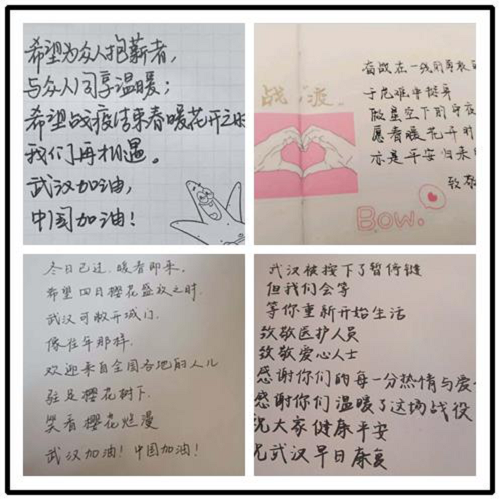 希望为众人抱薪者,
与众人同享温暖;
希望战疫结束春暖花开之时
我们再相遇。
武汉加油,
中国加油!
战
奋战在一线的
于危难中挺身
做星空下的守夜
愿春暖花开时
亦是平安归来
致敬
Bow.
冬日已过,暖春即来。
希望四月樱花盛放之时,
武汉可敞开城门,
像往年那样,
欢迎来自全国各地的人儿
驻足樱花树下,
笑看樱花烂漫
武汉加油!中国加油!
武汉被按下了暂停链
但我们会等
等你重新开始生活
致敬医护人员
致敬爱心人士
感谢你们的每一分热情与爱
感谢你们温暖了这场战役
祝大家健康平安
武汉早日康复